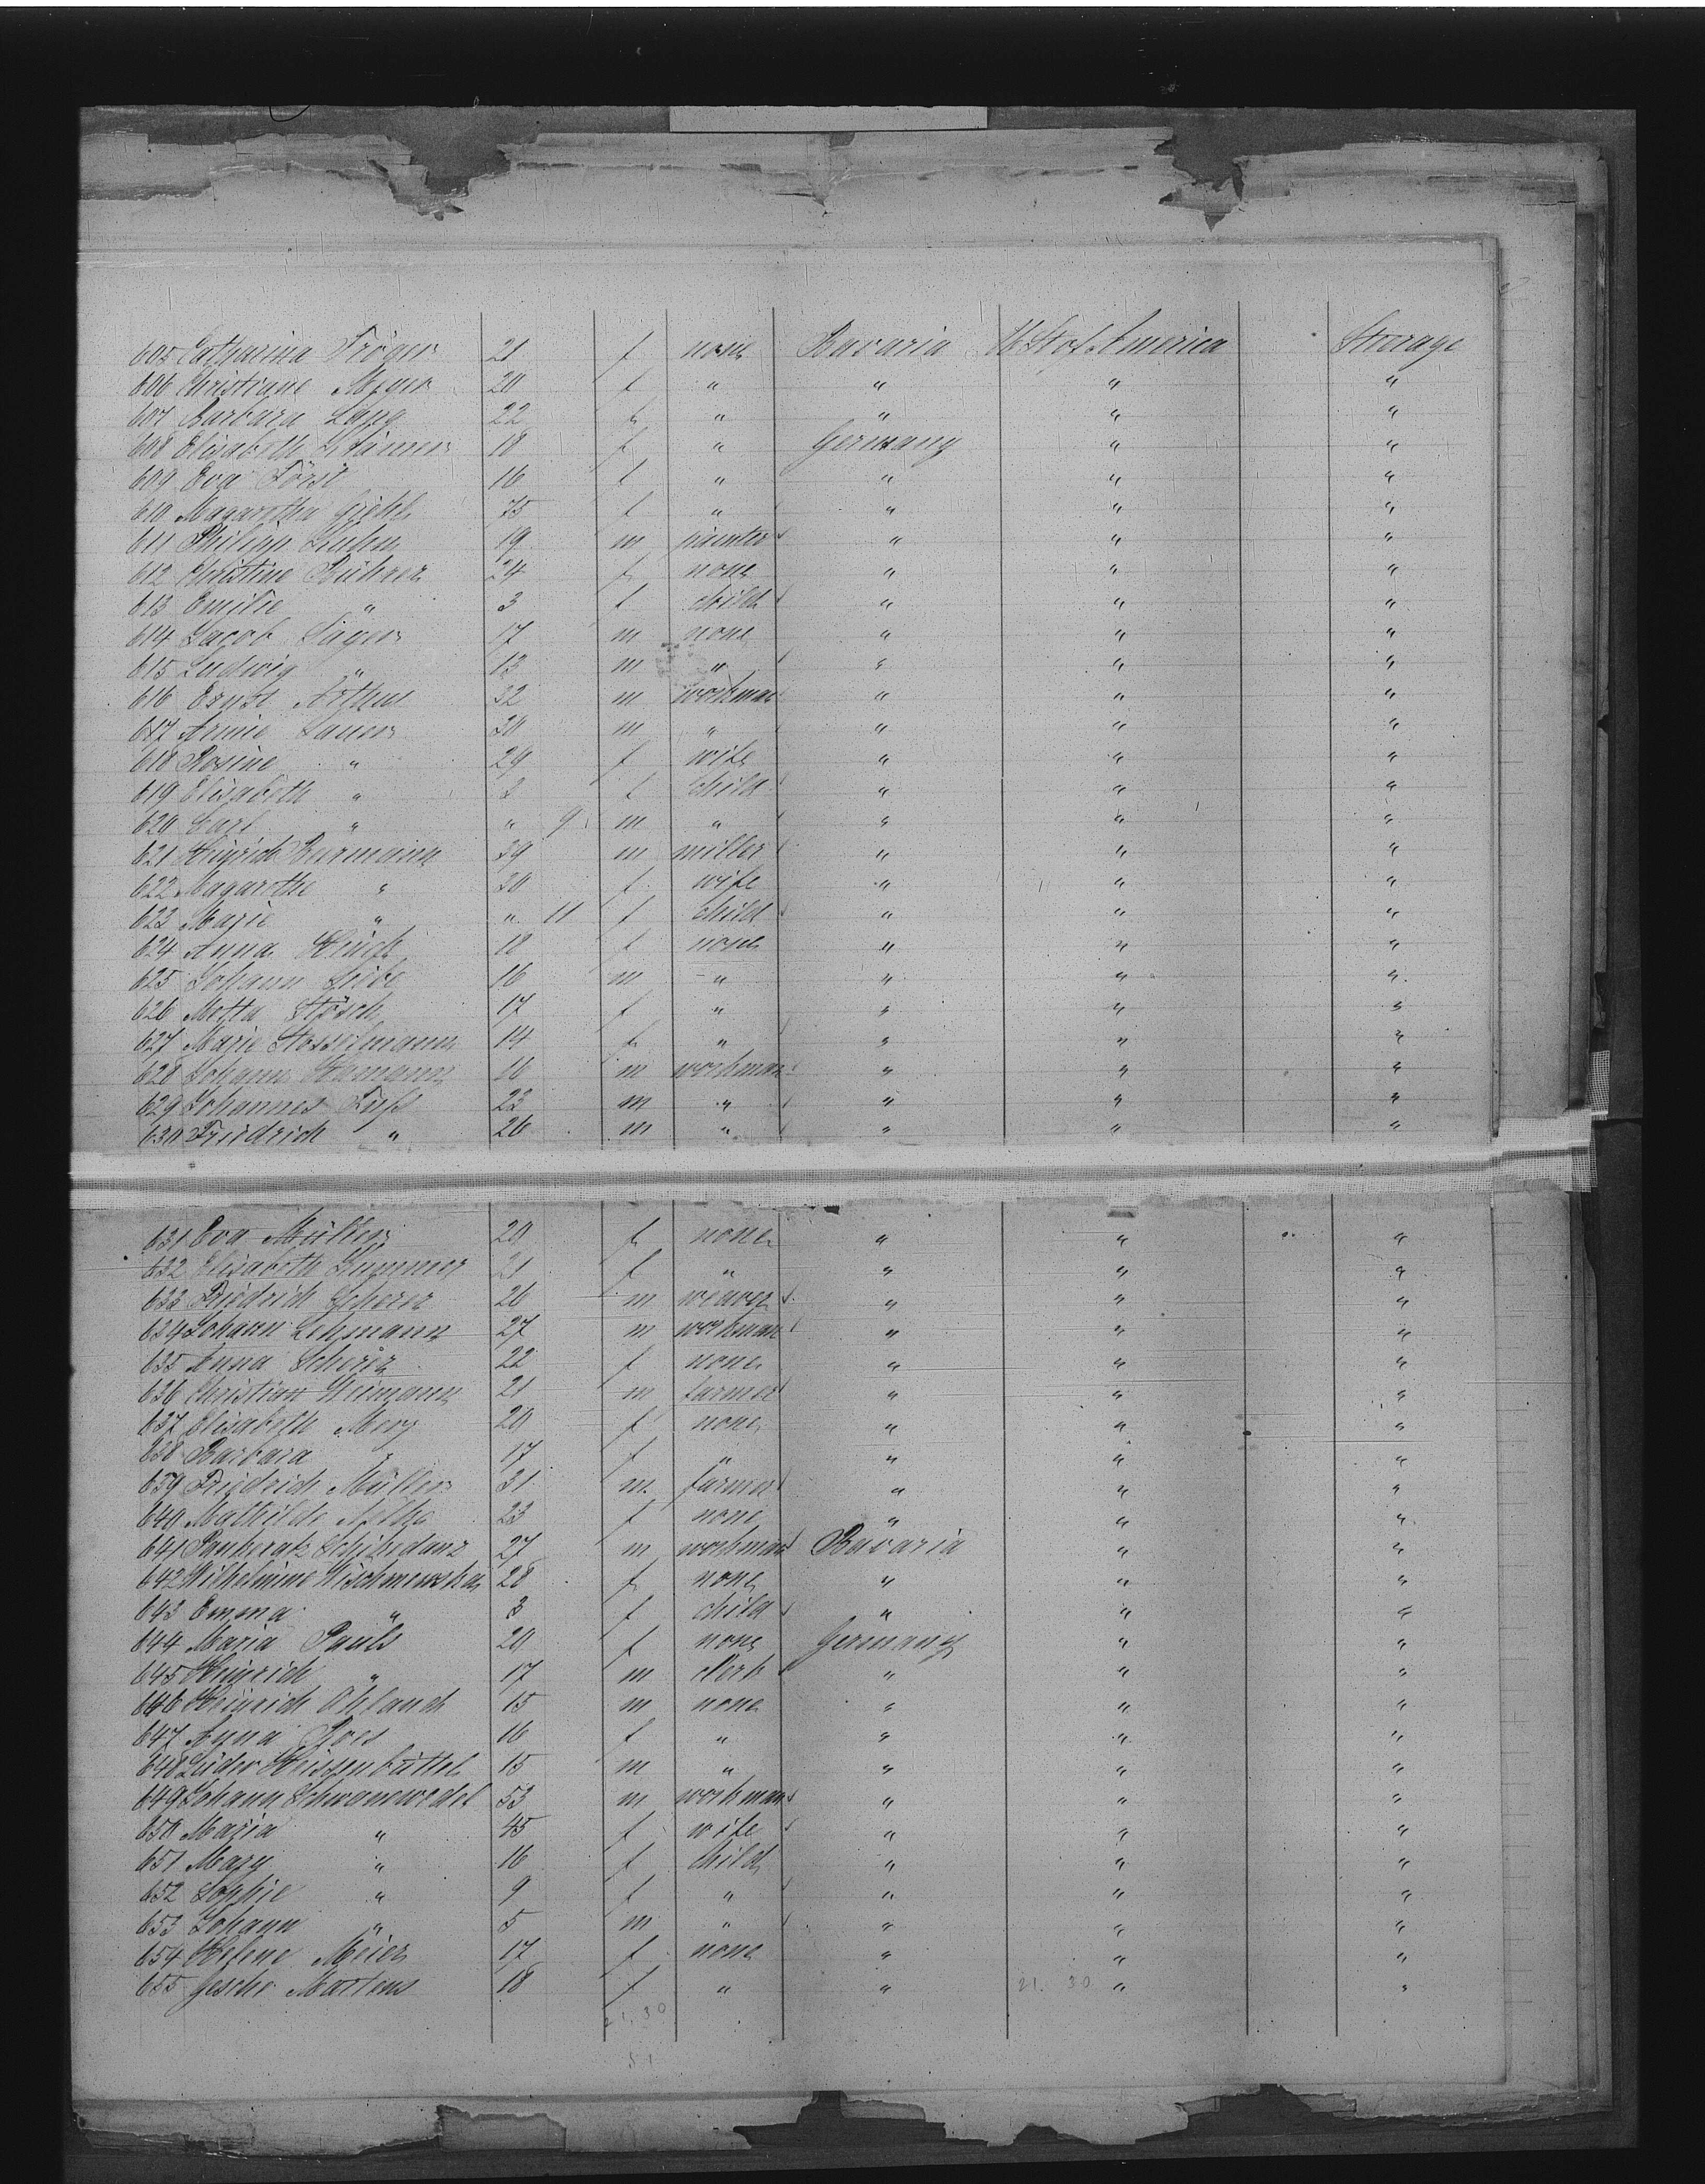 605 Catharina Tröger 21 f none Bavaria U St of America Steerage
606 Christiane Meyer 20 f " " " "
607 Barbara Lang 22 f " " " "
608 Elisabeth 18 f " Germany " "
609 Eva Först 16 f " " " "
610 Magarethe 75 f " " " "
611 Philipp 19 m painter " " "
612 Christine Bührer 24 f none " " "
613 Emilie " 3 f child " " "
614 Jacob Jäger 17 m none " " "
615 Ludwig " 13 m " " " "
616 Ernst 32 m workman " " "
617 Lauer 30 m " " " "
618 Rosine " 29 f wife " " "
619 Elisabeth " f child " " "
620 Carl " " 9 m " " " "
621 Heinrich Burmann 39 m miller " " "
622 Magarethe " 30 f wife " " "
623 Marie " " 11 f child " " "
624 Anna 18 f none " " "
625 Johann 16 m " " " "
626 Metta 17 f " " " "
627 Marie 14 f " " " "
628 Johann 16 m workman " " "
629 Johannes 23 m " " " "
630 Friedrich " 26 m " " " "
631 Eva Müller 20 f none " " "
632 Elisabeth Kummer 21 f " " " "
633 Friedrich Scherer 26 m weaver " " "
634 Johann Lehmann 27 m workman " " "
635 Anna Scherer 22 f none " " "
636 Christian 21 m farmer " " "
637 Elisabeth Merz 20 f none " " "
638 Barbara " 17 f " " " "
639 Friedrich Müller 31 m farmer " " "
640 Mathilde 23 f none " " "
641 27 m workman Bavaria " "
642 Wilhelmine 28 f none " " "
643 Emma " 3 f child " " "
644 Maria Pauls 20 f none Germany " "
645 Heinrich " 17 m clerk " " "
646 Heinrich Ahland 15 m none " " "
647 Anna 16 f " " " "
648 Lüder Heissenbüttel 15 m " " " "
649 Johann Schwanewedel 53 m workman " " "
650 Maria " 45 f wife " " "
651 Mary " 16 f child " " "
652 Sophie " 9 f " " " "
653 Johann " 5 m " " " "
654 Helene Meier 17 f none " " "
655 Gesche Martens 18 f " " 21. 30 " "
21,30
51